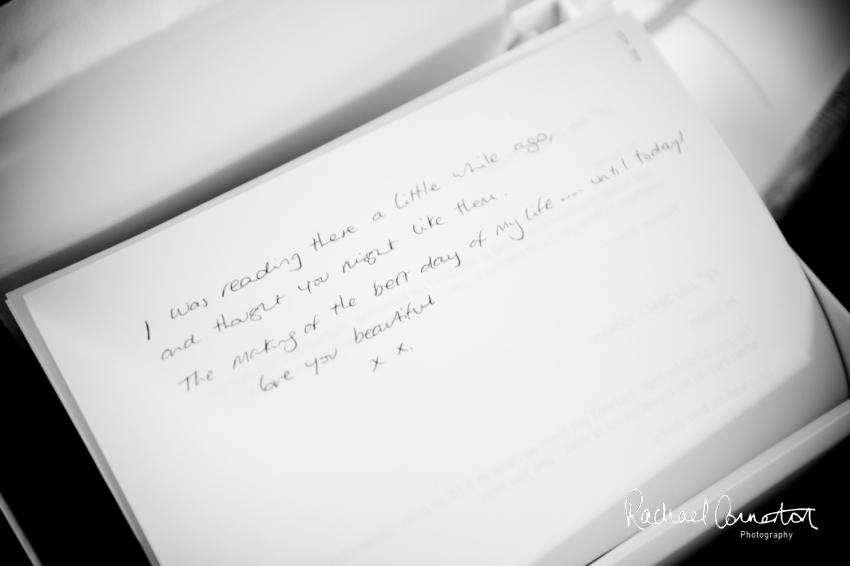 I was reading there a little while ago,
and thought you might like them.
The making of the best day of my life .... until today!
Love you beautiful
x x.
Rachael Connerton
Photography